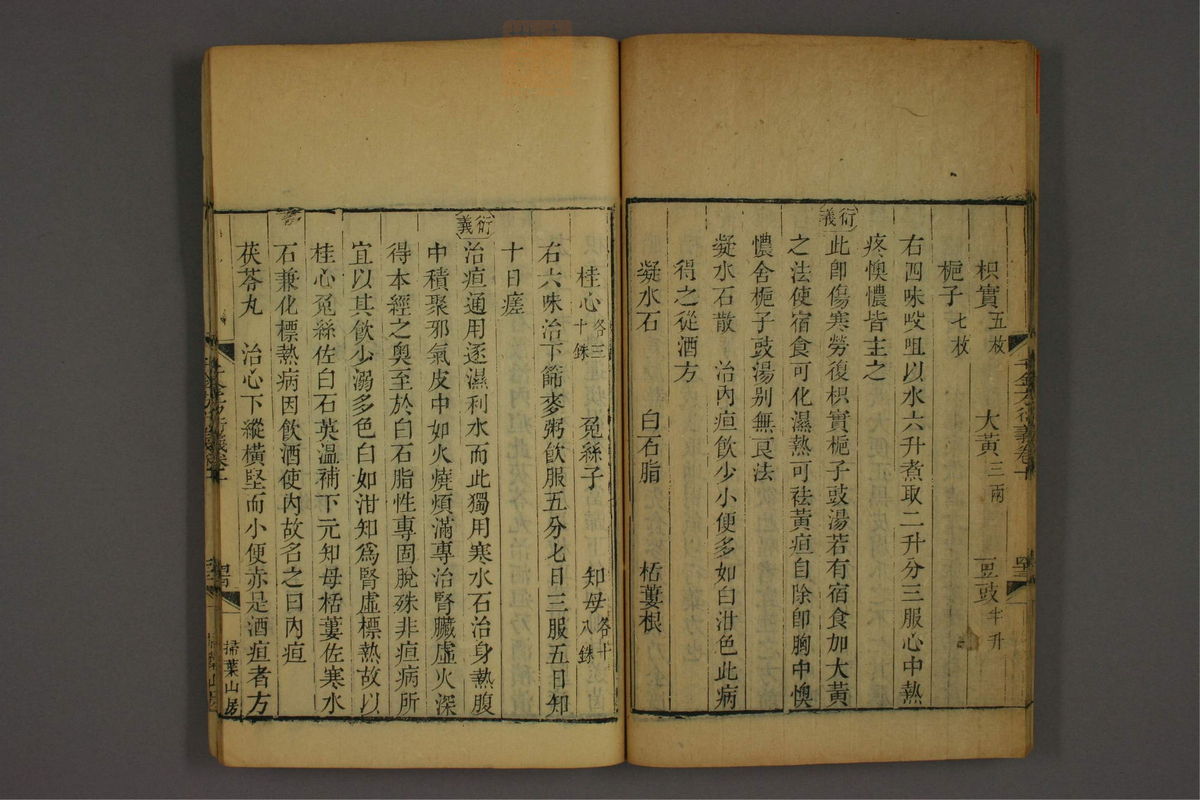 枳實五枚　大黃三兩　豆豉半升
梔子七枚
右四味㕮咀以水六升煮取二升分三服心中熱
疼懊憹皆主之
衍義
此卽傷寒勞復枳實梔子豉湯若有宿食加大黃
之法使宿食可化濕熱可祛黃疸自除卽胸中懊
憹舍梔子豉湯别無良法
凝水石散　治內疸飮少小便多如白泔色此病
得之從酒方
凝水石　白石脂　栝蔞根
桂心各三十銖　兔絲子　知母各十八銖
右六味治下篩麥粥飮服五分七日三服五日知
十日瘥
衍義
治疸通用逐濕利水而此獨用寒水石治身熱腹
中積聚邪氣皮中如火燒煩滿專治腎臟虛火深
得本經之奧至於白石脂性專固脫殊非疸病所
宜以其飮少溺多色白如泔知爲腎虛標熱故以
桂心兔絲佐白石英溫補下元知母栝蔞佐寒水
石兼化標熱病因飮酒使內故名之曰內疸
茯苓丸　治心下縱橫堅而小便赤是酒疸者方
掃葉山房